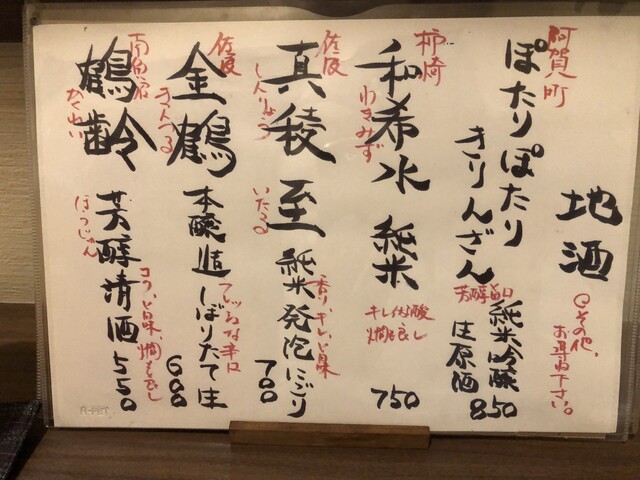 地酒
その他、
お尋ね下さい。
阿賀町
ぽたりぽたり
きりんざん
芳醇旨口
純米吟醸
生原酒
850
柿崎
和希水 純米
わきみず
キレ 燗も良し
750
佐渡
真稜 至 純米発泡にごり
しんりょう
いたる
香り キレ 旨味
700
佐渡
金鶴 本醸造しぼりたて生
きんつる
な辛口
600
南魚沼
鶴齢 芳醇清酒 550
かくれい
ほうじゅん
コク、旨味、燗も良し